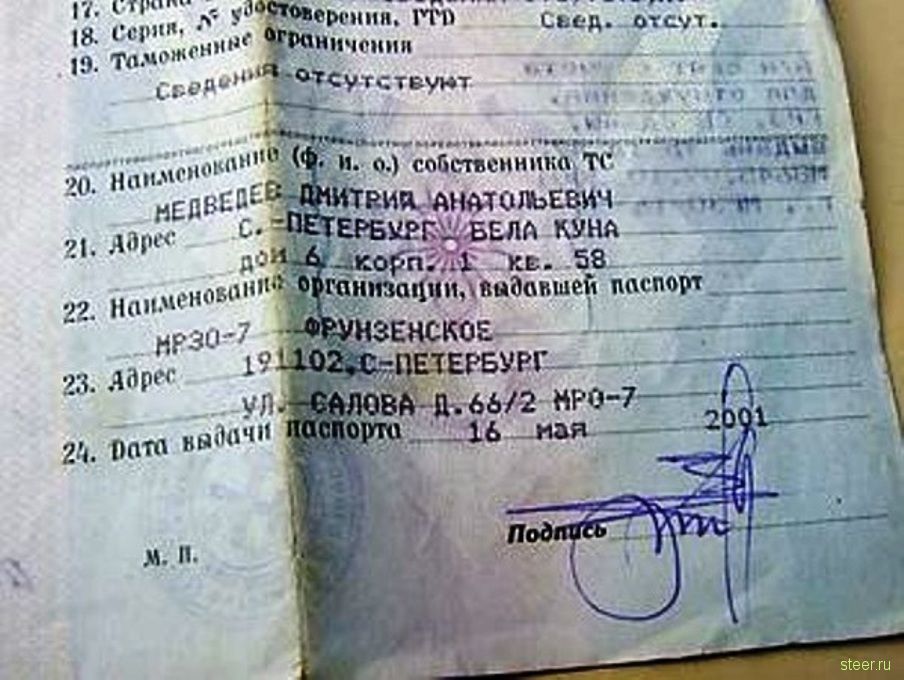 17. Страна
18. Серия, № удостоверения, ГТD Свед. отсут.
19. Таможенные ограничения
Сведения отсутствуют
20. Наименование (ф. и. о.) собственника ТС
МЕДВЕДЕВ ДМИТРИЙ АНАТОЛЬЕВИЧ
21. Адрес С.-ПЕТЕРБУРГ БЕЛА КУНА
дом 6 корп. 1 кв. 58
22. Наименование организации, выдавшей паспорт
МРЭО-7 ФРУНЗЕНСКОЕ
23. Адрес 191102,С-ПЕТЕРБУРГ
УЛ. САЛОВА Д.66/2 МРО-7
24. Дата выдачи паспорта 16 мая 2001
Подпись
М. П.
steer.ru